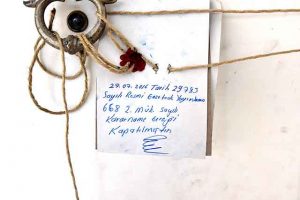 27.07.2016 Tarih 29783
Sayılı Resmi Gazetede Yayınlanan
668 2. Mük sayılı
Kararname Gereği
Kapatılmıştır